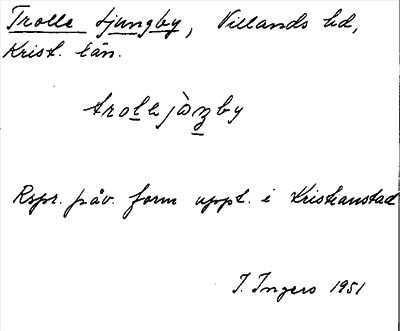 Trolle Ljungby, Villands hd,
Krist. län.
trolejòŋby
Rspr. påv. form uppt. i Kristianstad
I. Ingers 1951